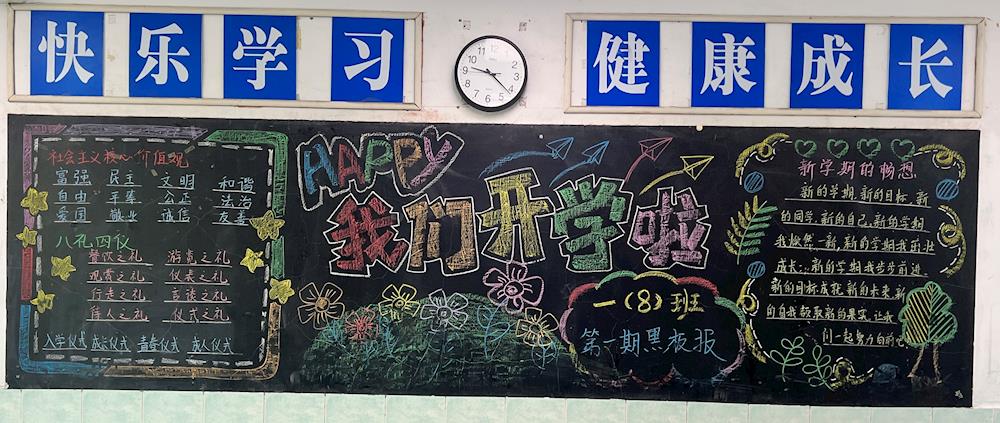 快乐学习
健康成长
社会主义核心价值观
富强 民主 文明 和谐
自由 平等 公正 法治
爱国 敬业 诚信 友善
八礼四仪
餐饮之礼 游览之礼
观赏之礼 仪表之礼
行走之礼 言谈之礼
待人之礼 仪式之礼
入学仪式 成长仪式 青春仪式 成人仪式
HAPPY
我们开学啦
一(8)班
第一期黑板报
新学期的畅想
新的学期,新的目标,新
的同学,新的自己,新的学期
我焕然一新,新的学期我茁壮
成长...新的学期我步步前进
新的目标成就新的未来,新
的自我领取新的果实,让我
们一起努力向前吧
12
1
2
3
4
5
6
7
8
9
10
11